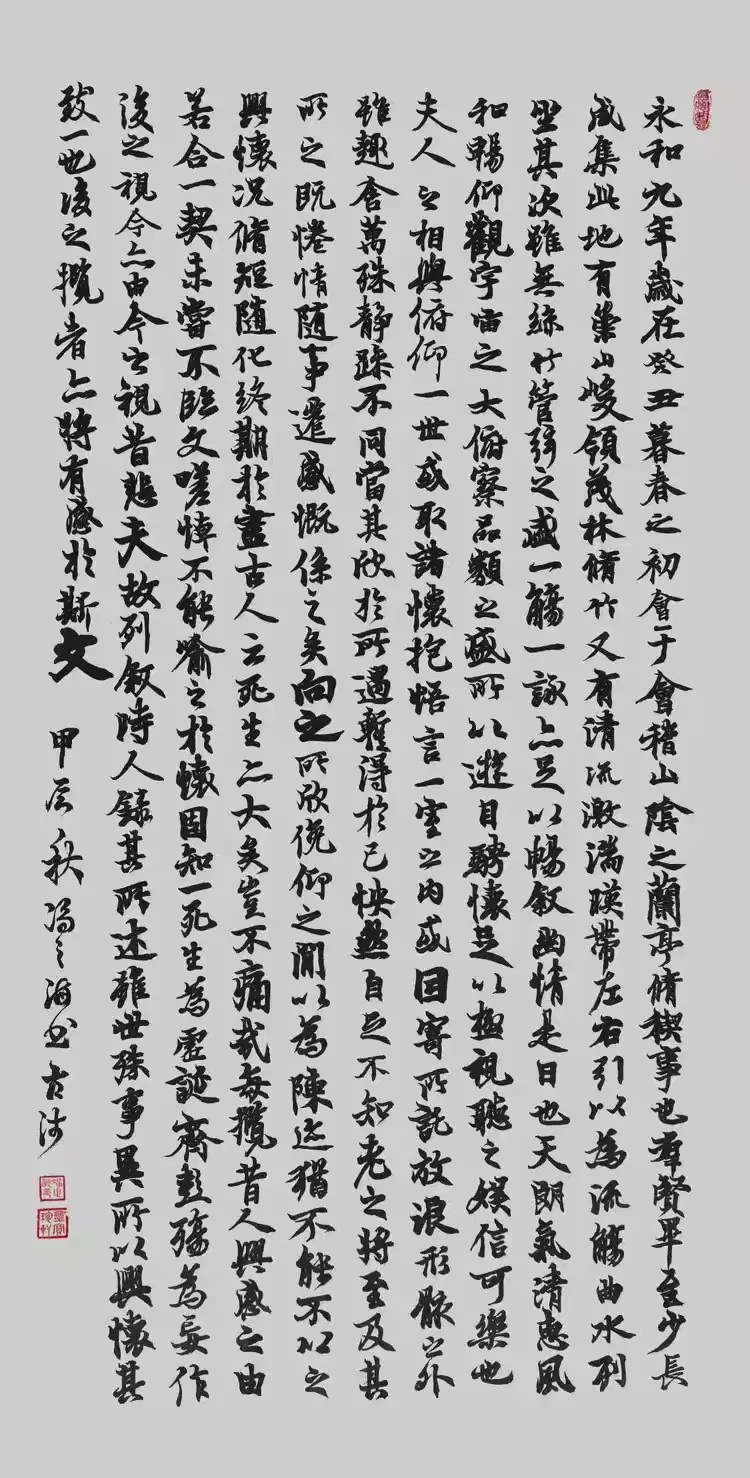 永和九年歲在癸丑暮春之初會于會稽山陰之蘭亭脩稧事也羣賢畢至少長
咸集此地有崇山峻領茂林脩竹又有清流激湍暎帶左右引以為流觴曲水列
坐其次雖無絲竹管弦之盛一觴一詠亦足以暢敘幽情是日也天朗氣清惠風
和暢仰觀宇宙之大俯察品類之盛所以遊目騁懷足以極視聽之娛信可樂也
夫人之相與俯仰一世或取諸懷抱悟言一室之內或因寄所託放浪形骸之外
雖趣舍萬殊靜躁不同當其欣於所遇暫得於己怏然自足不知老之將至及其
所之既惓情随事遷感慨係之矣向之所欣俛仰之閒以為陳迹猶不能不以之
興懷況脩短随化終期於盡古人云死生亦大矣豈不痛哉每攬昔人興感之由
若合一契未嘗不臨文嗟悼不能喻之於懷固知一死生為虛誕齊彭殤為妄作
後之視今亦由今之視昔悲夫故列敘時人錄其所述雖世殊事異所以興懷其
致一也後之攬者亦將有感於斯文 甲辰秋冯之海书古沛